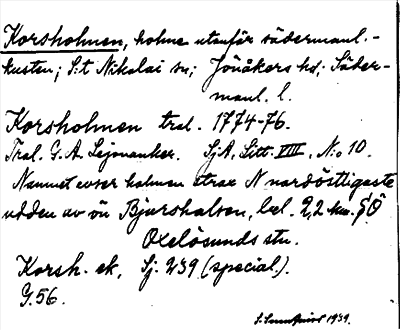 Korsholmen, holme utanför södermanl.-
kusten; S:t Nikolai sn; Jönåkers hd; Söder-
manl. l.
Korsholmen tral. 1774-76.
Tral. G. A. Lejonanker. SjA, Litt. VIII, N:o 10.
Namnet avser holmen strax N nordöstligaste
udden av ön Bjurshalsen, bel. 2,2 km. SÖ
Oxelösunds stn.
Korsh. ek. Sj. 239 (special.).
G. 56.
1939.